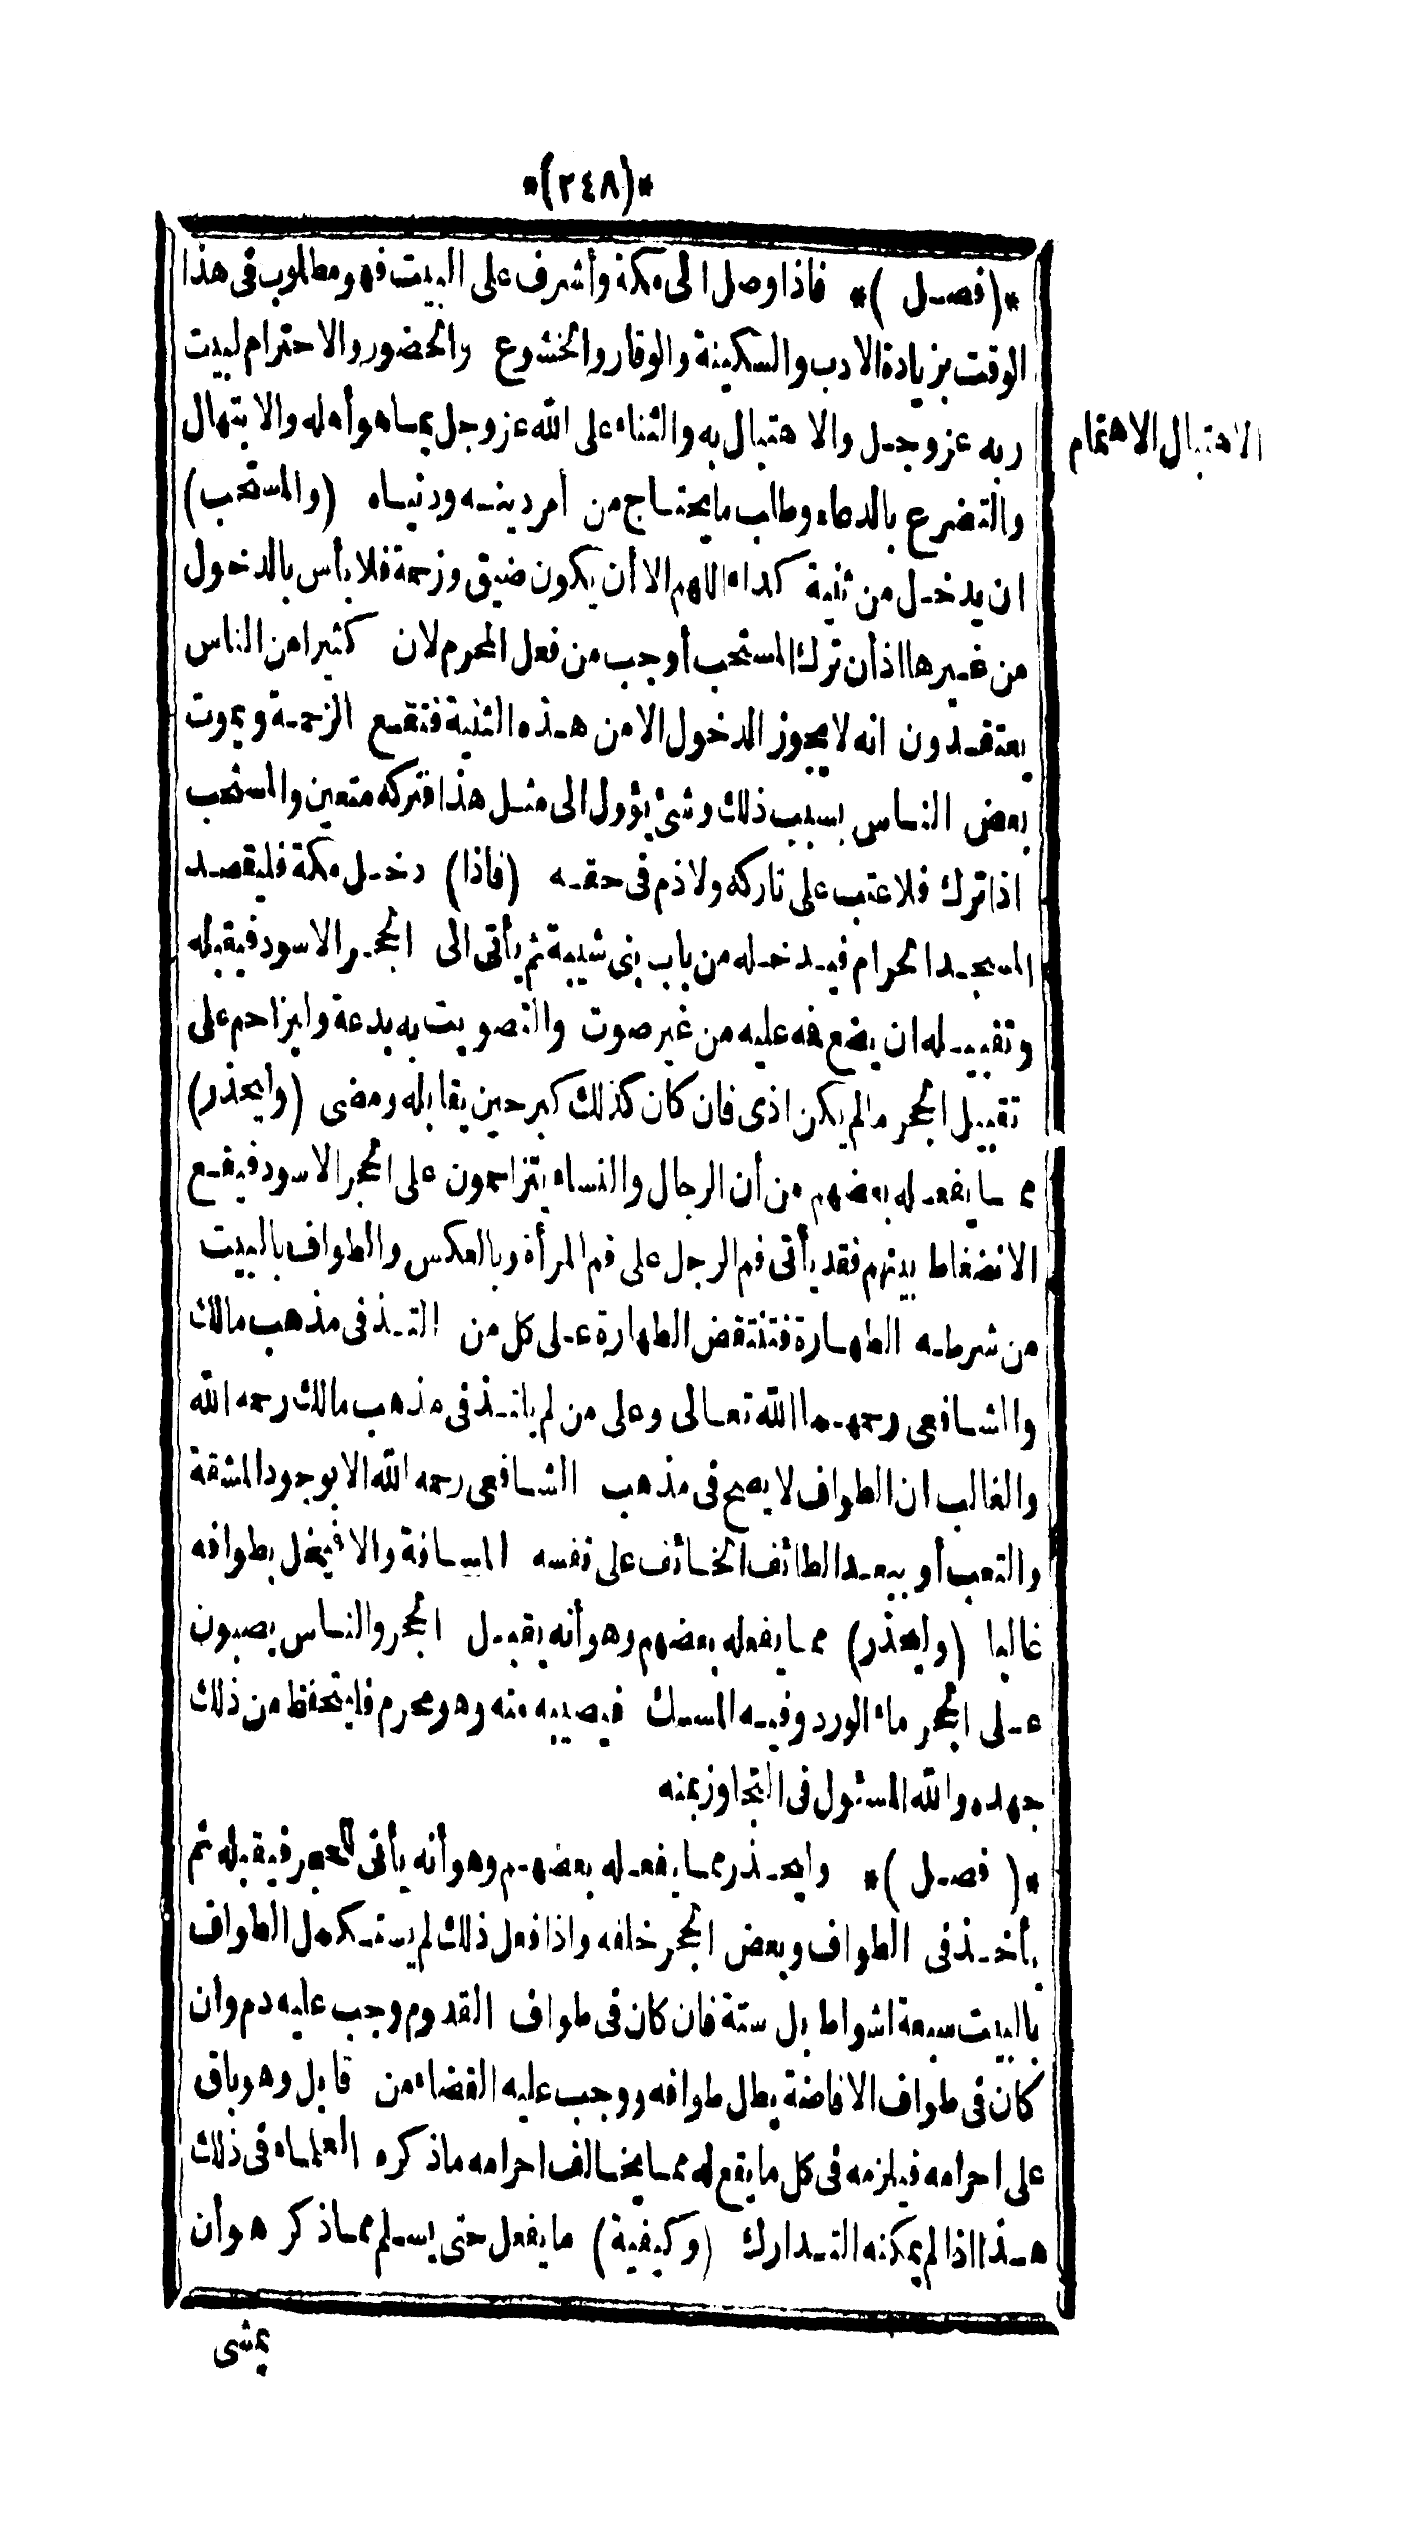 *(٢٤٨)*
*( فصل )* فاذا وصل الى مكة وأشرف على البيت فهو مطلوب فى هذا
الوقت بزيادة الادب والسكينة والوقار والخشوع والحضور والاحترام لبيت
ربه عز وجل والاهتبال به والثناء على الله عز وجل بما هو أهله والابتهال
الاهتبال الاهتمام
والتضرع بالدعاء وطلب ما يحتاج من أمر دينه ودنياه (والمستحب)
ان يدخل من ثنية كداء اللهم الا أن يكون ضيق وزحمة فلا بأس بالدخول
من غيرها اذ أن ترك المستحب أوجب من فعل المحرم لان كثيرا من الناس
يعتقدون انه لا يجوز الدخول الا من هذه الثنية فتقع الزحمة ويموت
بعض الناس بسبب ذلك وشئ يؤول الى مثل هذا فتركه متعين والمستحب
اذا ترك فلا عتب على تاركه ولا ذم فى حقه (فاذا) دخل مكة فليقصد
المسجد الحرام فيدخله من باب بنى شيبة ثم يأتى الى الحجر الاسود فيقبله
وتقبيله ان يضع فمه عليه من غير صوت والتصويت به بدعة وليزاحم على
تقبيل الحجر ما لم يكن اذى فان كان كذلك كبر حين يقابله ومضى (وليحذر)
مما يفعله بعضهم من أن الرجال والنساء يتزاحمون على الحجر الاسود فيقع
الانضغاط بينهم فقد يأتى فم الرجل على فم المرأة وبالعكس والطواف بالبيت
من شرطه الطهارة فتنتقض الطهارة على كل من التذ فى مذهب مالك
والشافعى رحمهما الله تعالى وعلى من لم يلتذ فى مذهب مالك رحمه الله
والغالب ان الطواف لا يصح فى مذهب الشافعى رحمه الله الا بوجود المشقة
والتعب أو يبعد الطائف الخائف على نفسه المسافة والا فيخل بطوافه
غالبا (وليحذر) مما يفعله بعضهم وهو أنه يقبل الحجر والناس يصبون
على الحجر ماء الورد وفيه المسك فيصيبه منه وهو محرم فليتحفظ من ذلك
جهده والله المسئول فى التجاوز بمنه
*( فصل )* وليحذر مما يفعله بعضهم وهو أنه يأتى للحجر فيقبله ثم
يأخذ فى الطواف وبعض الحجر خلفه واذا فعل ذلك لم يستكمل الطواف
بالبيت سبعة اشواط بل ستة فان كان فى طواف القدوم وجب عليه دم وان
كان فى طواف الافاضة بطل طوافه ووجب عليه القضاء من قابل وهو باق
على احرامه فيلزمه فى كل ما يقع له مما يخالف احرامه ما ذكره العلماء فى ذلك
هذا اذا لم يمكنه التدارك (وكيفية) ما يفعل حتى يسلم مما ذكر هو أن
يمشى